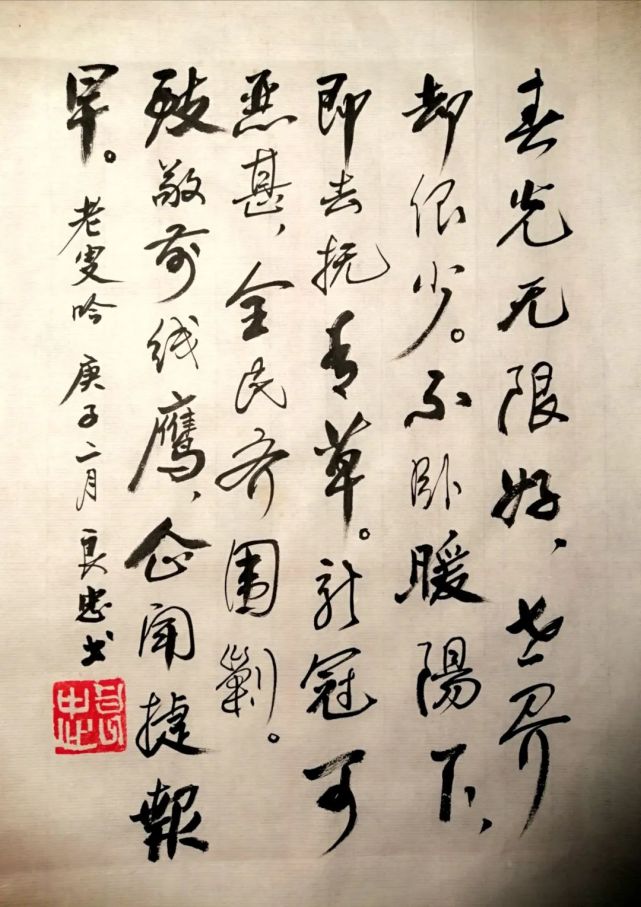 春光无限好，世界
却很少。不卧暖陽下，
即去抚青草。新冠可
恶甚，全民齐围剿。
致敬前线鹰，企闻捷報
早。
老叟吟 庚子二月 良忠书